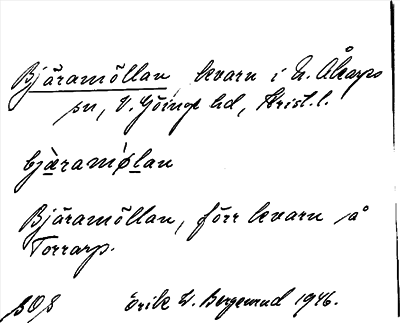 Bjäramöllan, kvarn i N. Åkarps
sn, V. Göinge hd, Krist. l.
bjæramø̀lan
Bjäramöllan, förr kvarn å
Torrarp.
Erik W. Bergemud 1946.